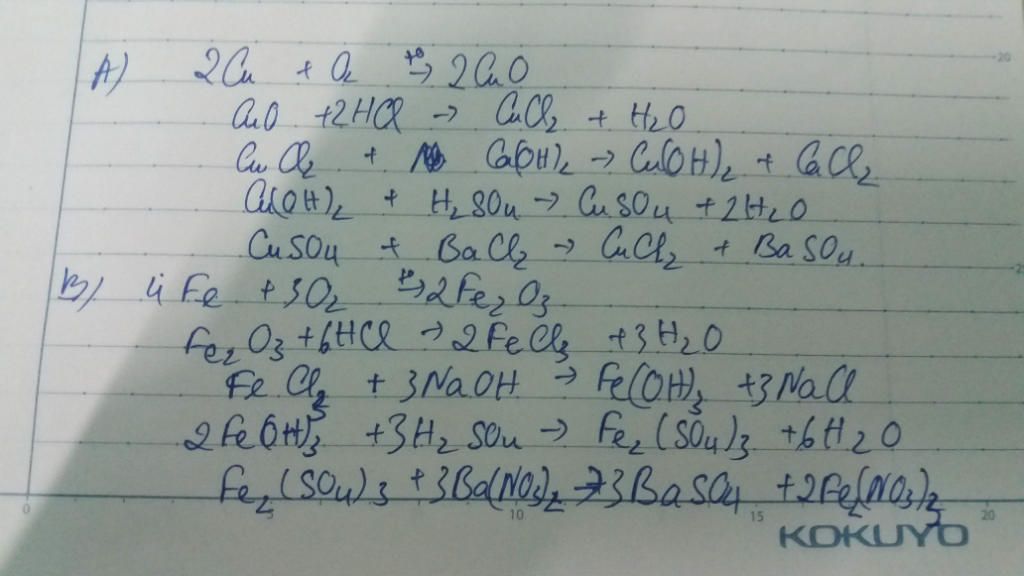 A) 2Cu + O₂ →ᵗ° 2CuO
CuO + 2HCl → CuCl₂ + H₂O
CuCl₂ + Ca(OH)₂ → Cu(OH)₂ + CaCl₂
Cu(OH)₂ + H₂SO₄ → CuSO₄ + 2H₂O
CuSO₄ + BaCl₂ → CuCl₂ + BaSO₄
B) 4Fe + 3O₂ →ᵗ° 2Fe₂O₃
Fe₂O₃ + 6HCl → 2FeCl₃ + 3H₂O
FeCl₃ + 3NaOH → Fe(OH)₃ + 3NaCl
2Fe(OH)₃ + 3H₂SO₄ → Fe₂(SO₄)₃ + 6H₂O
Fe₂(SO₄)₃ + 3Ba(NO₃)₂ → 3BaSO₄ + 2Fe(NO₃)₃
0 5 10 15 20
KOKUYO